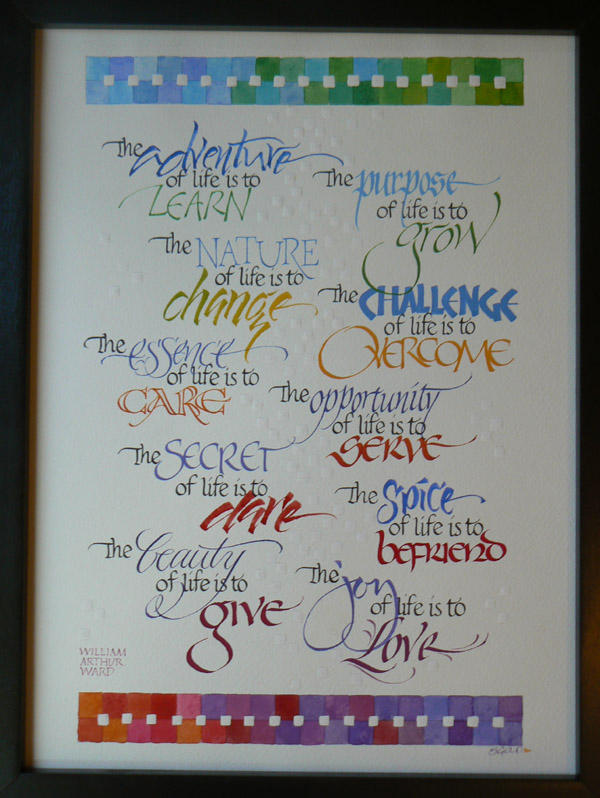 The adventure
of life is to
LEARN
The purpose
of life is to
grow
The NATURE
of life is to
change
The CHALLENGE
of life is to
OVERCOME
The essence
of life is to
CARE
The opportunity
of life is to
SERVE
The SECRET
of life is to
dare
The Spice
of life is to
befriend
The beauty
of life is to
give
The joy
of life is to
Love
WILLIAM
ARTHUR
WARD